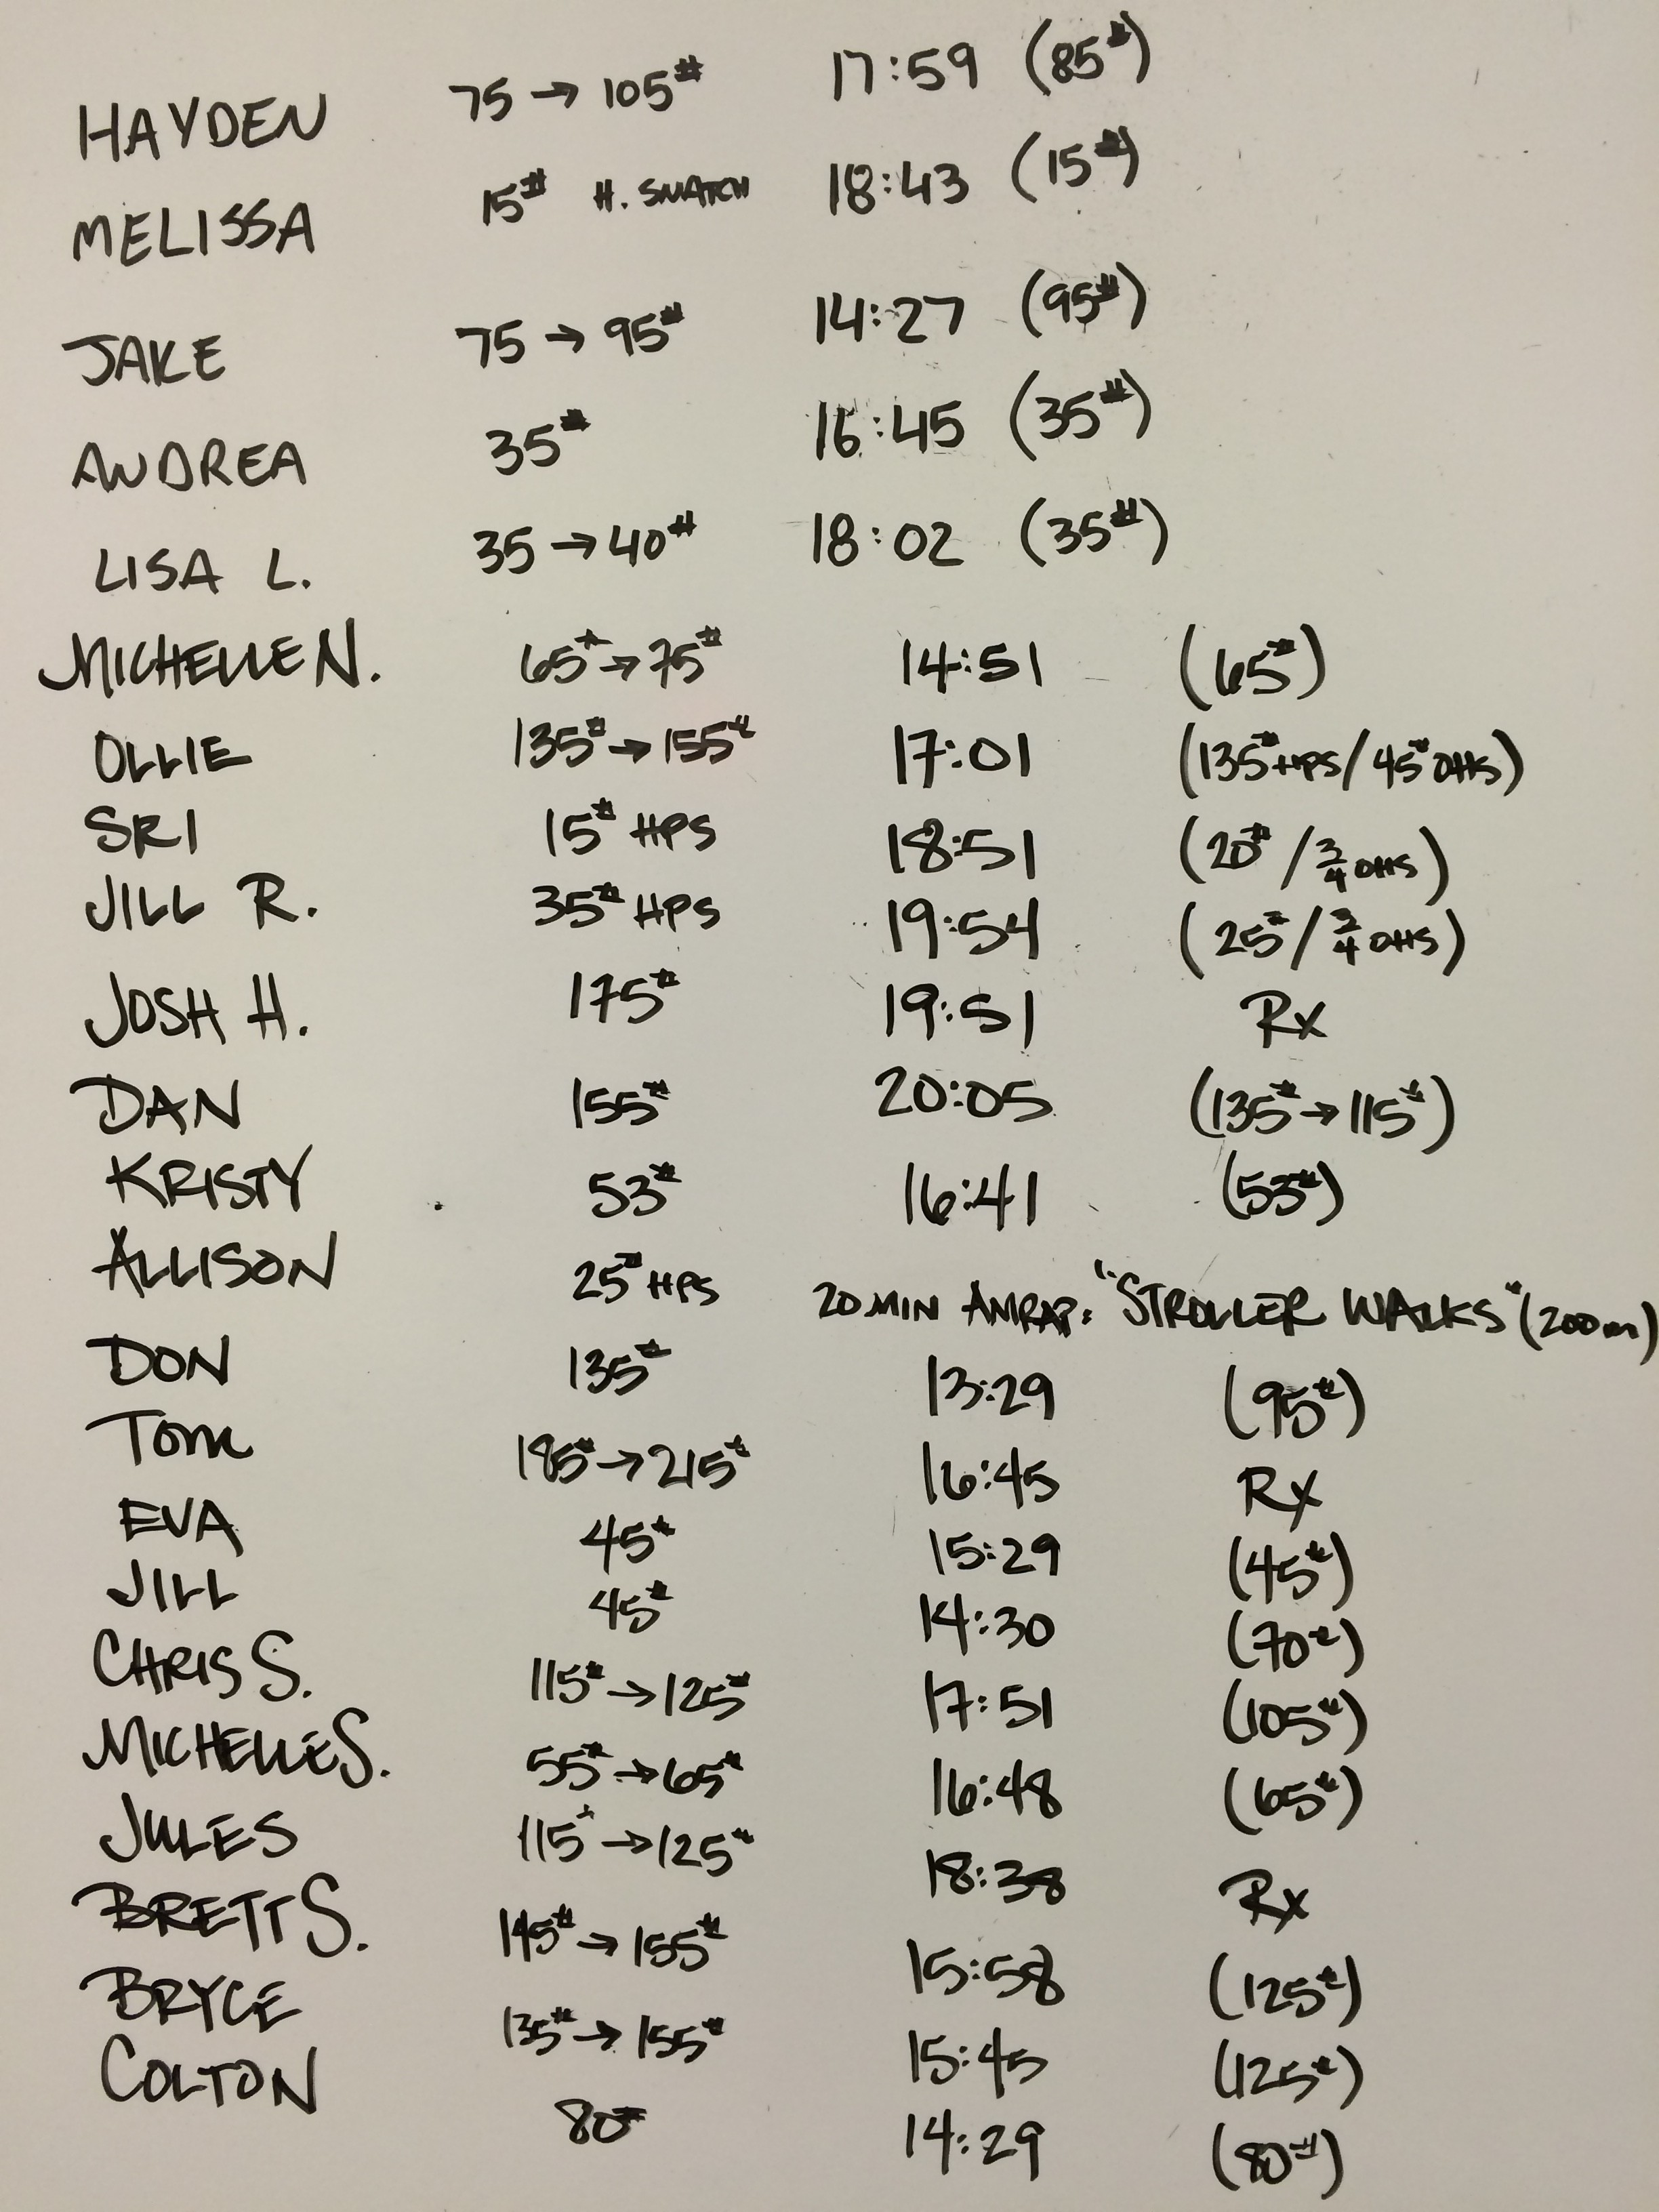 HAYDEN 75 → 105# 17:59 (85#)
MELISSA 15# H. SNATCH 18:43 (15#)
JAKE 75 → 95# 14:27 (95#)
ANDREA 35# 16:45 (35#)
LISA L. 35 → 40# 18:02 (35#)
MICHELLE N. 65# → 75# 14:51 (65#)
OLLIE 135# → 155# 17:01 (135# HPS / 45# OHS)
SRI 15# HPS 18:51 (20# / 3/4 OHS)
JILL R. 35# HPS 19:54 (25# / 3/4 OHS)
JOSH H. 175# 19:51 Rx
DAN 155# 20:05 (135# → 115#)
KRISTY 53# 16:41 (53#)
ALLISON 25# HPS 20 MIN AMRAP: "STROLLER WALKS" (200m)
DON 135# 13:29 (95#)
TOM 185# → 215# 16:45 Rx
EVA 45# 15:29 (45#)
JILL 45# 14:30 (70#)
CHRIS S. 115# → 125# 17:51 (105#)
MICHELLE S. 55# → 65# 16:48 (65#)
JULES 115# → 125# 18:38 Rx
BRETT S. 145# → 155# 15:58 (125#)
BRYCE 135# → 155# 15:45 (125#)
COLTON 80# 14:29 (80#)